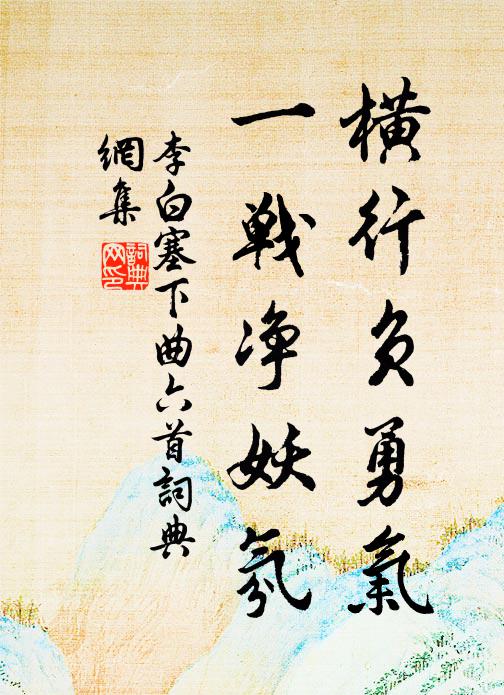 橫行負勇氣
一戰净妖氛
李白塞下曲六首詞典
網集
詞典
网印